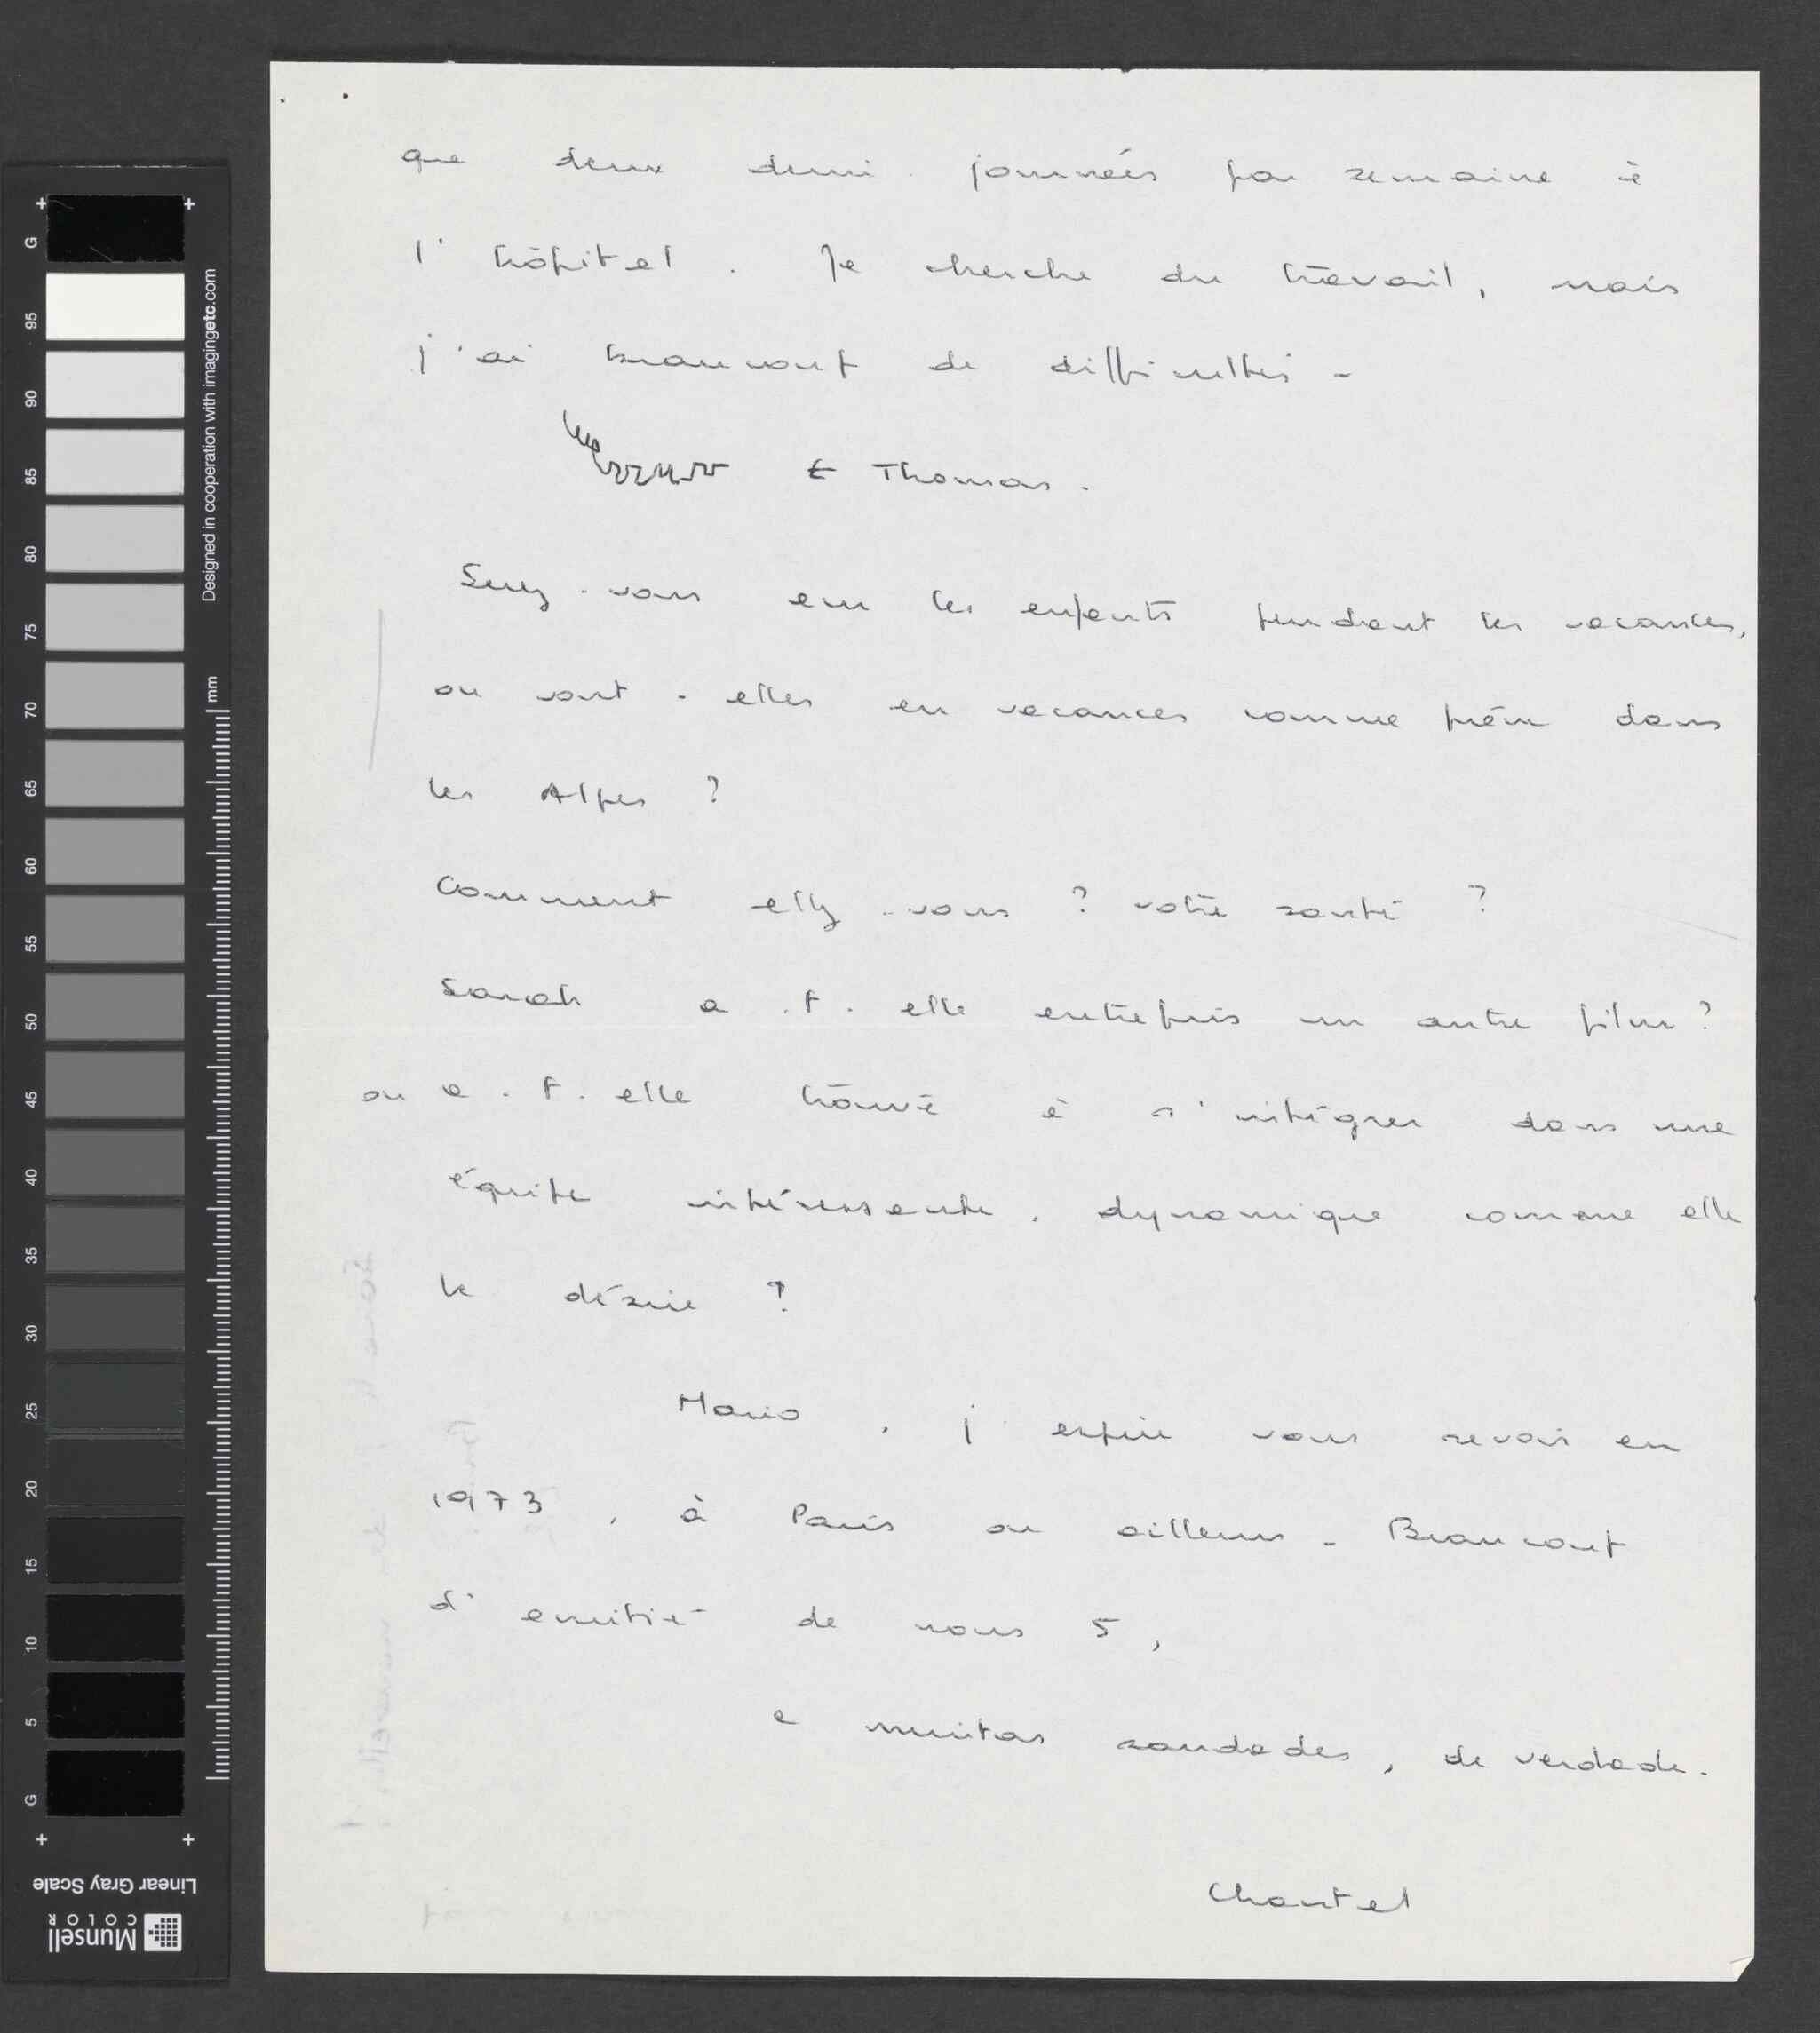 que deux demi-journées par semaine à
l'hôpital. Je cherche du travail, mais
j'ai beaucoup de difficultés -
← Thomas.
Serez-vous avec les enfants pendant les vacances,
ou vont-elles en vacances comme prévu dans
les Alpes ?
Comment allez-vous ? votre santé ?
Sarah a-t-elle entrepris un autre film ?
ou a-t-elle trouvé à s'intégrer dans une
équipe intéressante, dynamique comme elle
le désire ?
Mario, j'espère vous revoir en
1973, à Paris ou ailleurs - Beaucoup
d'amitié de nous 5,
e muitas saudades, de verdade.
Chantal
G
95
90
85
80
75
70
65
60
55
50
45
40
35
30
25
20
15
10
5
G
Designed in cooperation with imagingetc.com
mm
Linear Gray Scale
Munsell
COLOR